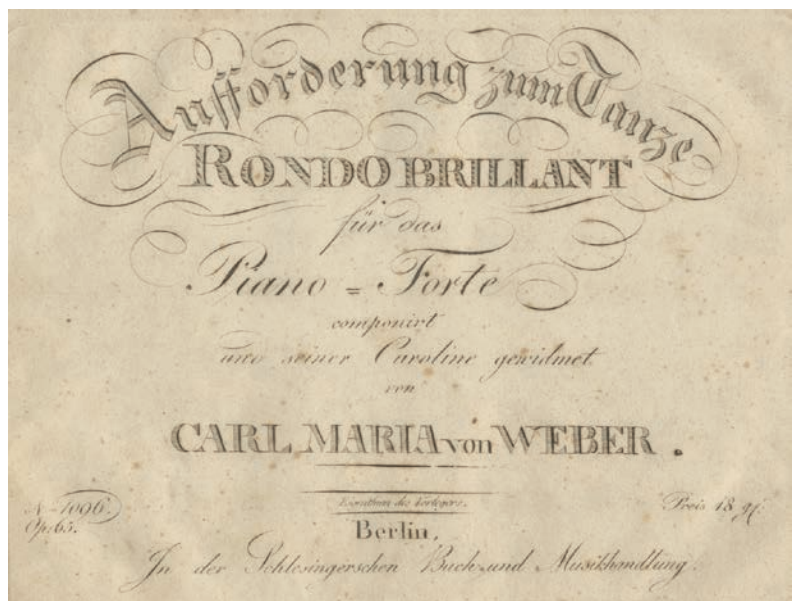 Aufforderung zum Tanze
RONDO BRILLANT
für das
Piano = Forte
componirt
und seiner Caroline gewidmet
von
CARL MARIA von WEBER.
Eigenthum des Verlegers.
No. 1096.
Op. 65.
Preis 18 gr.
Berlin,
In der Schlesingerschen Buch- und Musikhandlung.